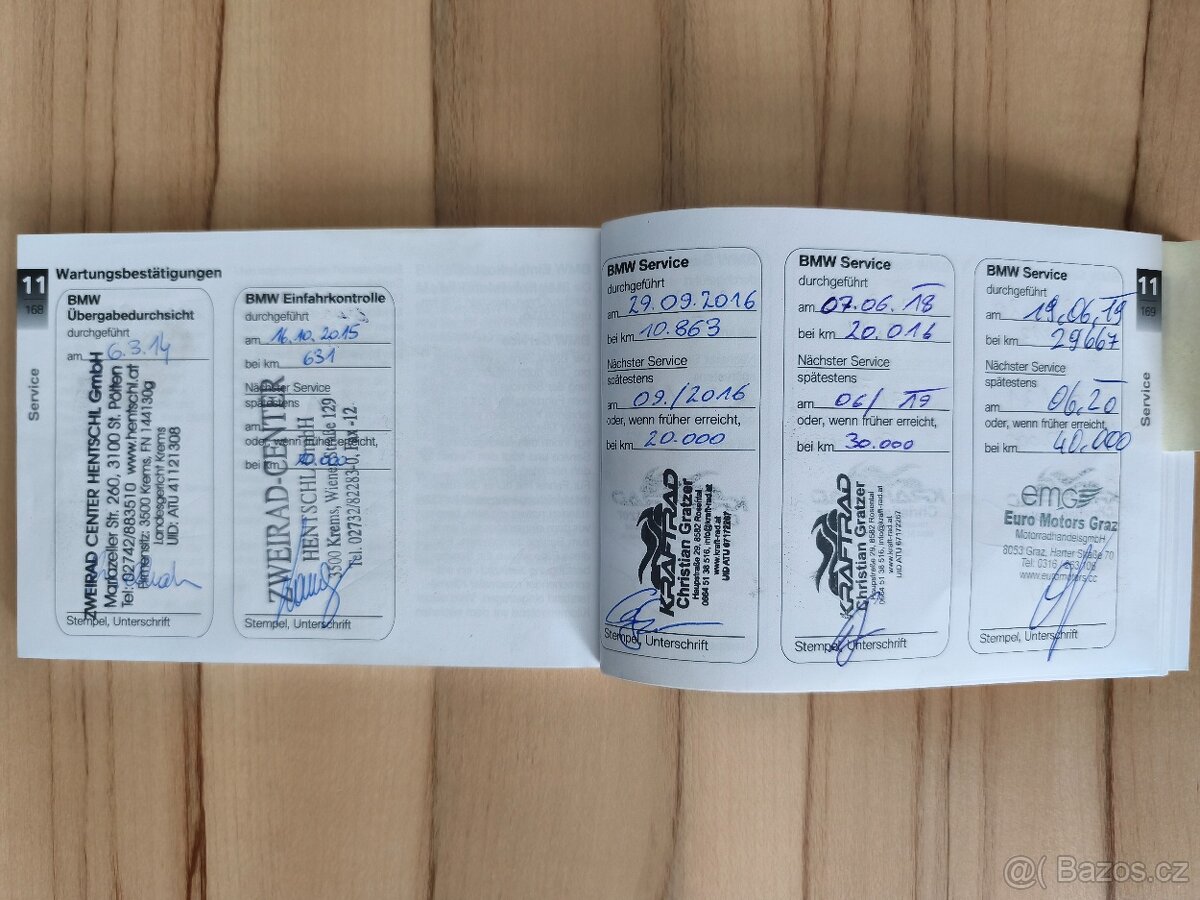 11
168
Service
Wartungsbestätigungen
BMW
Übergabedurchsicht
durchgeführt
am 6.3.14
ZWEIRAD CENTER HENTSCHL GmbH
Mariazeller Str. 260, 3100 St. Pölten
Tel: 02742/883510 www.hentschl.at
Firmensitz: 3500 Krems, FN 144130g
Landesgericht Krems
UID: ATU 41121308
Stempel, Unterschrift
BMW Einfahrkontrolle
durchgeführt
am 16.10.2015
bei km 631
Nächster Service
spätestens
am
oder, wenn früher erreicht,
bei km 10.000
ZWEIRAD-CENTER
HENTSCHL GmbH
3500 Krems, Wiener Straße 129
Tel. 02732/82283-0, Fax -12
Stempel, Unterschrift
BMW Service
durchgeführt
am 29.09.2016
bei km 10.863
Nächster Service
spätestens
am 09./2016
oder, wenn früher erreicht,
bei km 20.000
KRAFTRAD
Christian Gratzer
Hauptstraße 29, 8582 Rosental
0664 51 38 516, info@kraft-rad.at
www.kraft-rad.at
UID ATU 67172267
Stempel, Unterschrift
BMW Service
durchgeführt
am 07.06.18
bei km 20.016
Nächster Service
spätestens
am 06/19
oder, wenn früher erreicht,
bei km 30.000
KRAFTRAD
Christian Gratzer
Hauptstraße 29, 8582 Rosental
0664 51 38 516, info@kraft-rad.at
www.kraft-rad.at
UID ATU 67172267
Stempel, Unterschrift
BMW Service
durchgeführt
am 19.06.19
bei km 29667
Nächster Service
spätestens
am 06.20
oder, wenn früher erreicht,
bei km 40.000
emg
Euro Motors Graz
MotorradhandelsgmbH
8053 Graz, Harter Straße 70
Tel.: 0316
www.euromotors.cc
Stempel, Unterschrift
11
169
Service
@( Bazos.cz